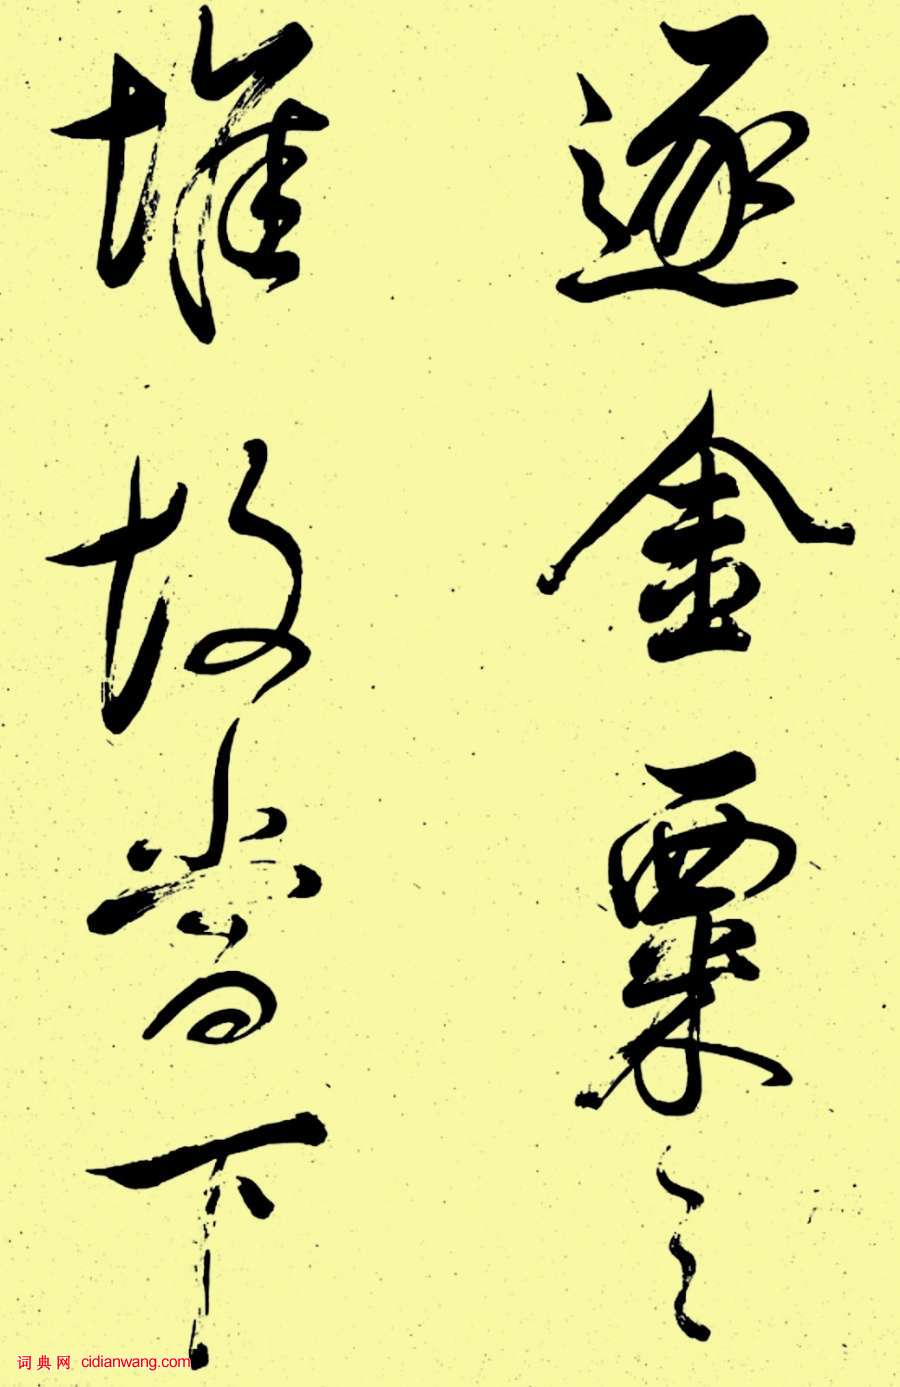 逐金粟之
堆故嘗下
词典网 cidianwang.com